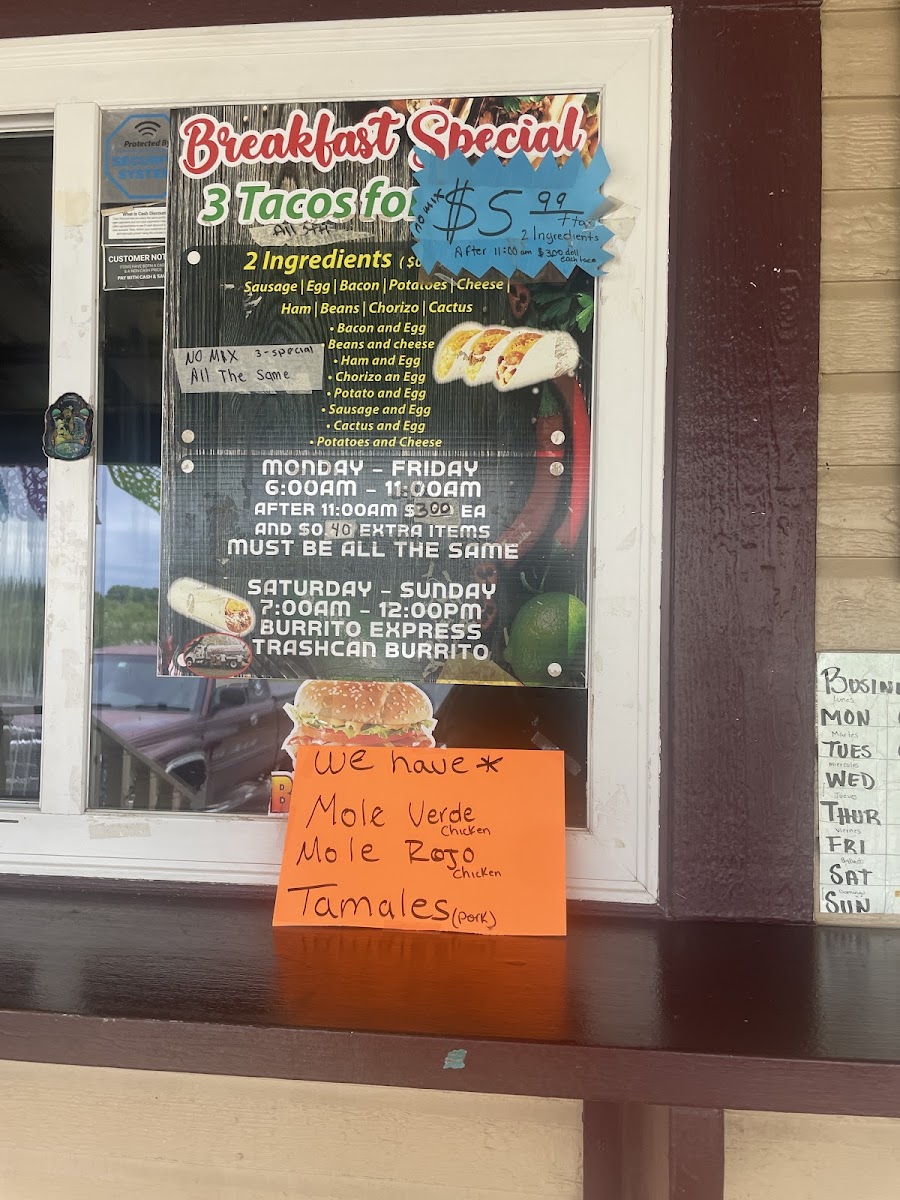 Protected By
SECURITY
SYSTEM
What is Cash Discount
CUSTOMER NOT
PAY WITH CASH & SAV
Breakfast Special
3 Tacos for
no mix
$5.99
+ tax
2 Ingredients
After 11:00am $3.00 doll
each taco
2 Ingredients
Sausage | Egg | Bacon | Potatoes | Cheese |
Ham | Beans | Chorizo | Cactus
• Bacon and Egg
Beans and cheese
• Ham and Egg
• Chorizo an Egg
• Potato and Egg
• Sausage and Egg
• Cactus and Egg
• Potatoes and Cheese
NO MIX 3-special
All The Same
MONDAY - FRIDAY
6:00AM - 11:00AM
AFTER 11:00AM $3.00 EA
AND $0.40 EXTRA ITEMS
MUST BE ALL THE SAME
SATURDAY - SUNDAY
7:00AM - 12:00PM
BURRITO EXPRESS
TRASHCAN BURRITO
B
We have *
Mole Verde
Chicken
Mole Rojo
Chicken
Tamales (pork)
BUSIN
Lunes
MON
Martes
TUES
Miercoles
WED
Jueves
THUR
Viernes
FRI
SAT
Domingo
SUN